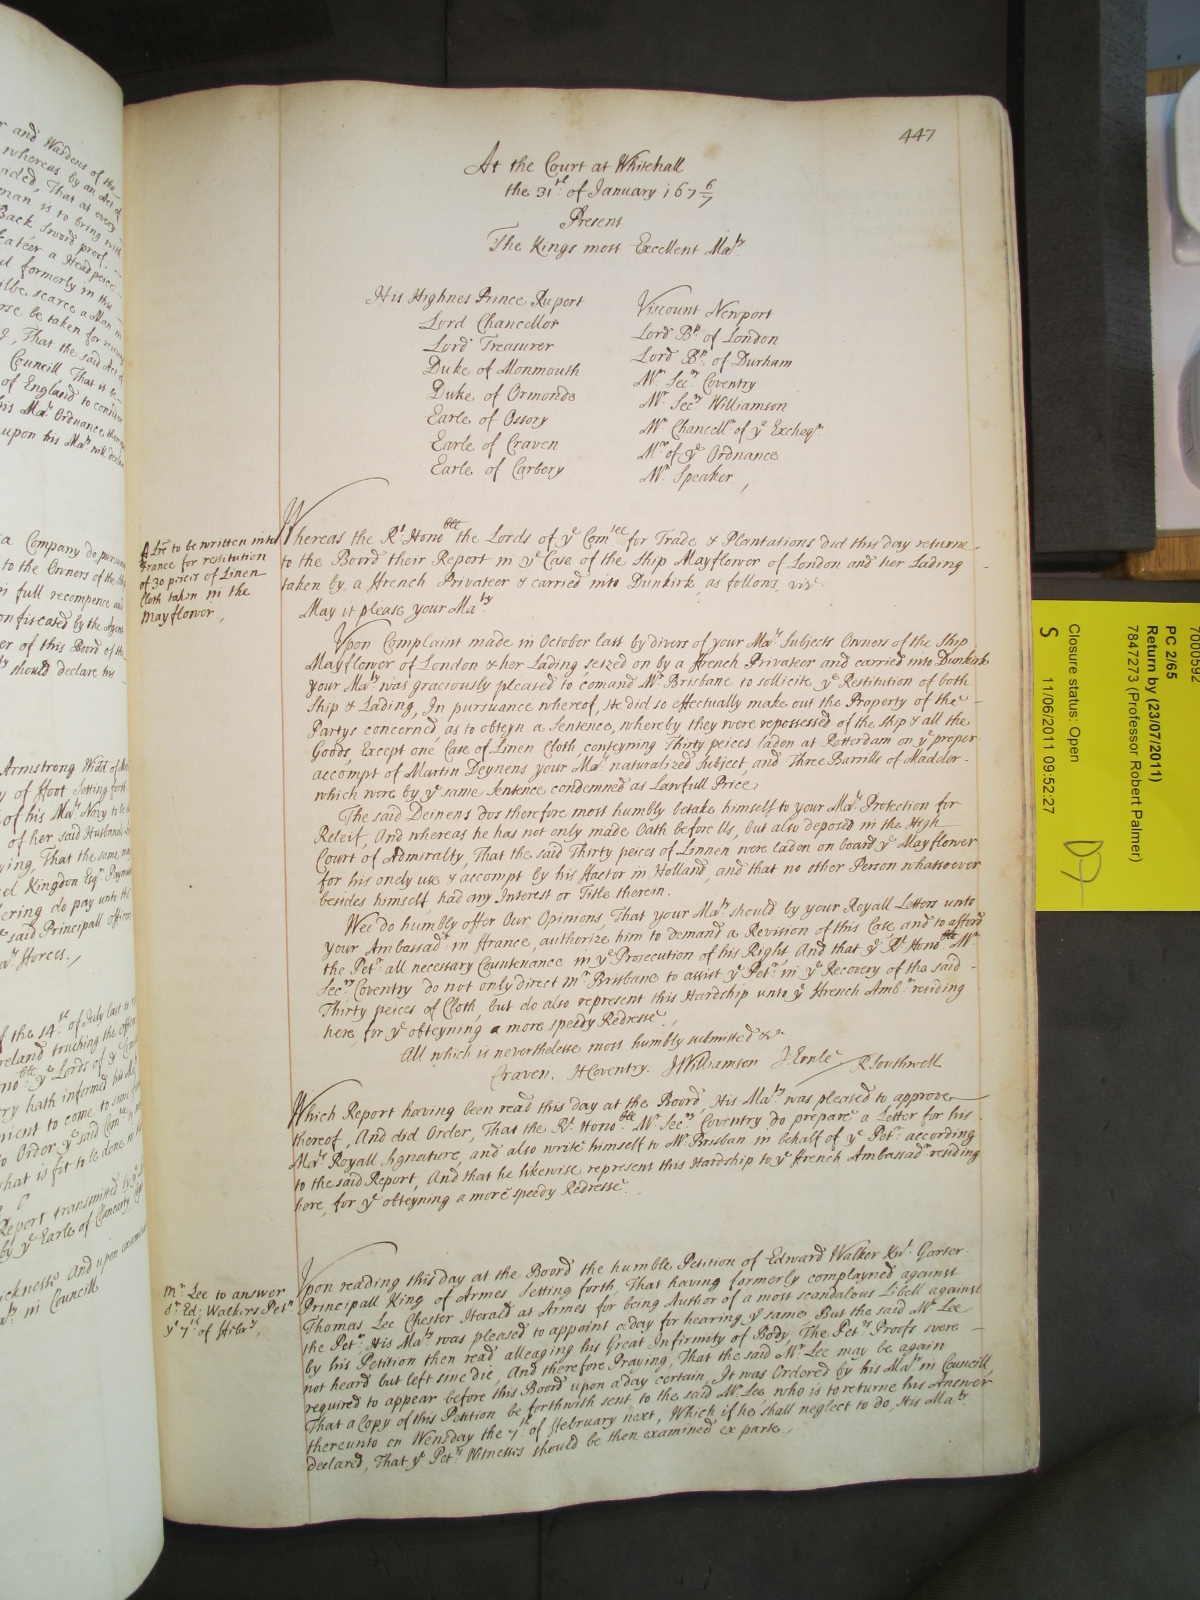 447
At the Court at Whitehall
the 31st of January 167 6/7
Present
The Kings most Excellent Maty
His Highnes Prince Rupert
Lord Chancellor
Lord Treasurer
Duke of Monmouth
Duke of Ormonde
Earle of Ossory
Earle of Craven
Earle of Carbery
Viscount Newport
Lord Bp of London
Lord Bp of Durham
Mr Secry Coventry
Mr Secry Williamson
Mr Chancellr of ye Excheqr
Mr of ye Ordnance
Mr Speaker,
A Lre to be written into
France for restitution
of 30 peices of Linen
Cloth taken in the
Mayflower,
Whereas the Rt Honoble the Lords of ye Comtee for Trade & Plantations did this day returne
to the Board their Report in ye Case of the Ship Mayflower of London and her Lading
taken by a ffrench Privateer & carried into Dunkirk, as follows vizt
May it please your Maty
Vpon Complaint made in October last by divers of your Mats Subjects Owners of the Ship
Mayflower of London & her Lading, seized on by a ffrench Privateer and carried into Dunkirk
your Maty was graciously pleased to comand Mr Brisbane to sollicite ye Restitution of both
Ship & Lading, In pursuance whereof, He did so effectually make out the Property of the
Partys concerned, as to obteyn a Sentence, whereby they were repossessed of the Ship & all the
Goods, Except one Case of Linen Cloth conteyning Thirty peices laden at Rotterdam on ye proper
accompt of Martin Deynens your Mats naturalized Subject, and Three Barrills of Madder.
which were by ye same Sentence condemned as Lawfull Price,
The said Deinens dos therefore most humbly betake himself to your Mats Protection for
Releif, And whereas he has not only made Oath before Us, but also deposed in the High
Court of Admiralty, That the said Thirty peices of Linnen were laden on board ye Mayflower
for his onely use & accompt by his ffactor in Holland, and that no other Person whatsoever
besides himself, had any Interest or Title therein.
Wee do humbly offer Our Opinions, That your Maty should by your Royall Letters unto
your Ambassadr in ffrance, authorize him to demand a Revision of this Case, and to afford
the Petr all necessary Countenance in ye Prosecution of his Right. And that ye Rt Honoble Mr
Secry Coventry do not only direct Mr Brisbane to assist ye Petr in ye Recovery of the said
Thirty peices of Cloth, but do also represent this Hardship unto ye ffrench Ambr residing
here, for ye obteyning a more speedy Redresse.,
All which is neverthelesse most humbly submitted &ca
Craven. HCoventry. JWilliamson J Ernle RSouthwell
Which Report having been read this day at the Board, His Maty was pleased to approve
thereof, And did Order, That the Rt Honoble Mr Secry Coventry do prepare a Letter for his
Mats Royall Signature, and also write himself to Mr Brisban in behalf of ye Petr according
to the said Report, And that he likewise represent this Hardship to ye ffrench Ambassadr residing
here, for ye obteyning a more speedy Redresse.
Mr Lee to answer
Sr Ed: Walkers Petn
ye 7th of ffebry,
Vpon reading this day at the Board the humble Petition of Edward Walker Knt Garter
Principall King of Armes Setting forth, That having formerly complayned against
Thomas Lee Chester Herald at Armes for being Author of a most scandalous Libell against
the Petr His Maty was pleased to appoint a day for hearing ye same, But the said Mr Lee
by his Petition then read alleaging his Great Infirmity of Body, The Petrs Proofs were
not heard but left sine die, And therefore Praying, That the said Mr Lee may be again
required to appear before this Board upon a day certain, It was Ordered by his Maty in Councill,
That a Copy of this Petition be forthwith sent to the said Mr Lee, who is to returne his Answer
thereunto on Wensday the 7th of ffebruary next, Which if he shall neglect to do, His Maty
declared, That ye Petrs Witnesses should be then examined ex parte.,
7000592
PC 2/65
Return by (23/07/2011)
7847273 (Professor Robert Palmer)
Closure status: Open
S 11/06/2011 09:52:27